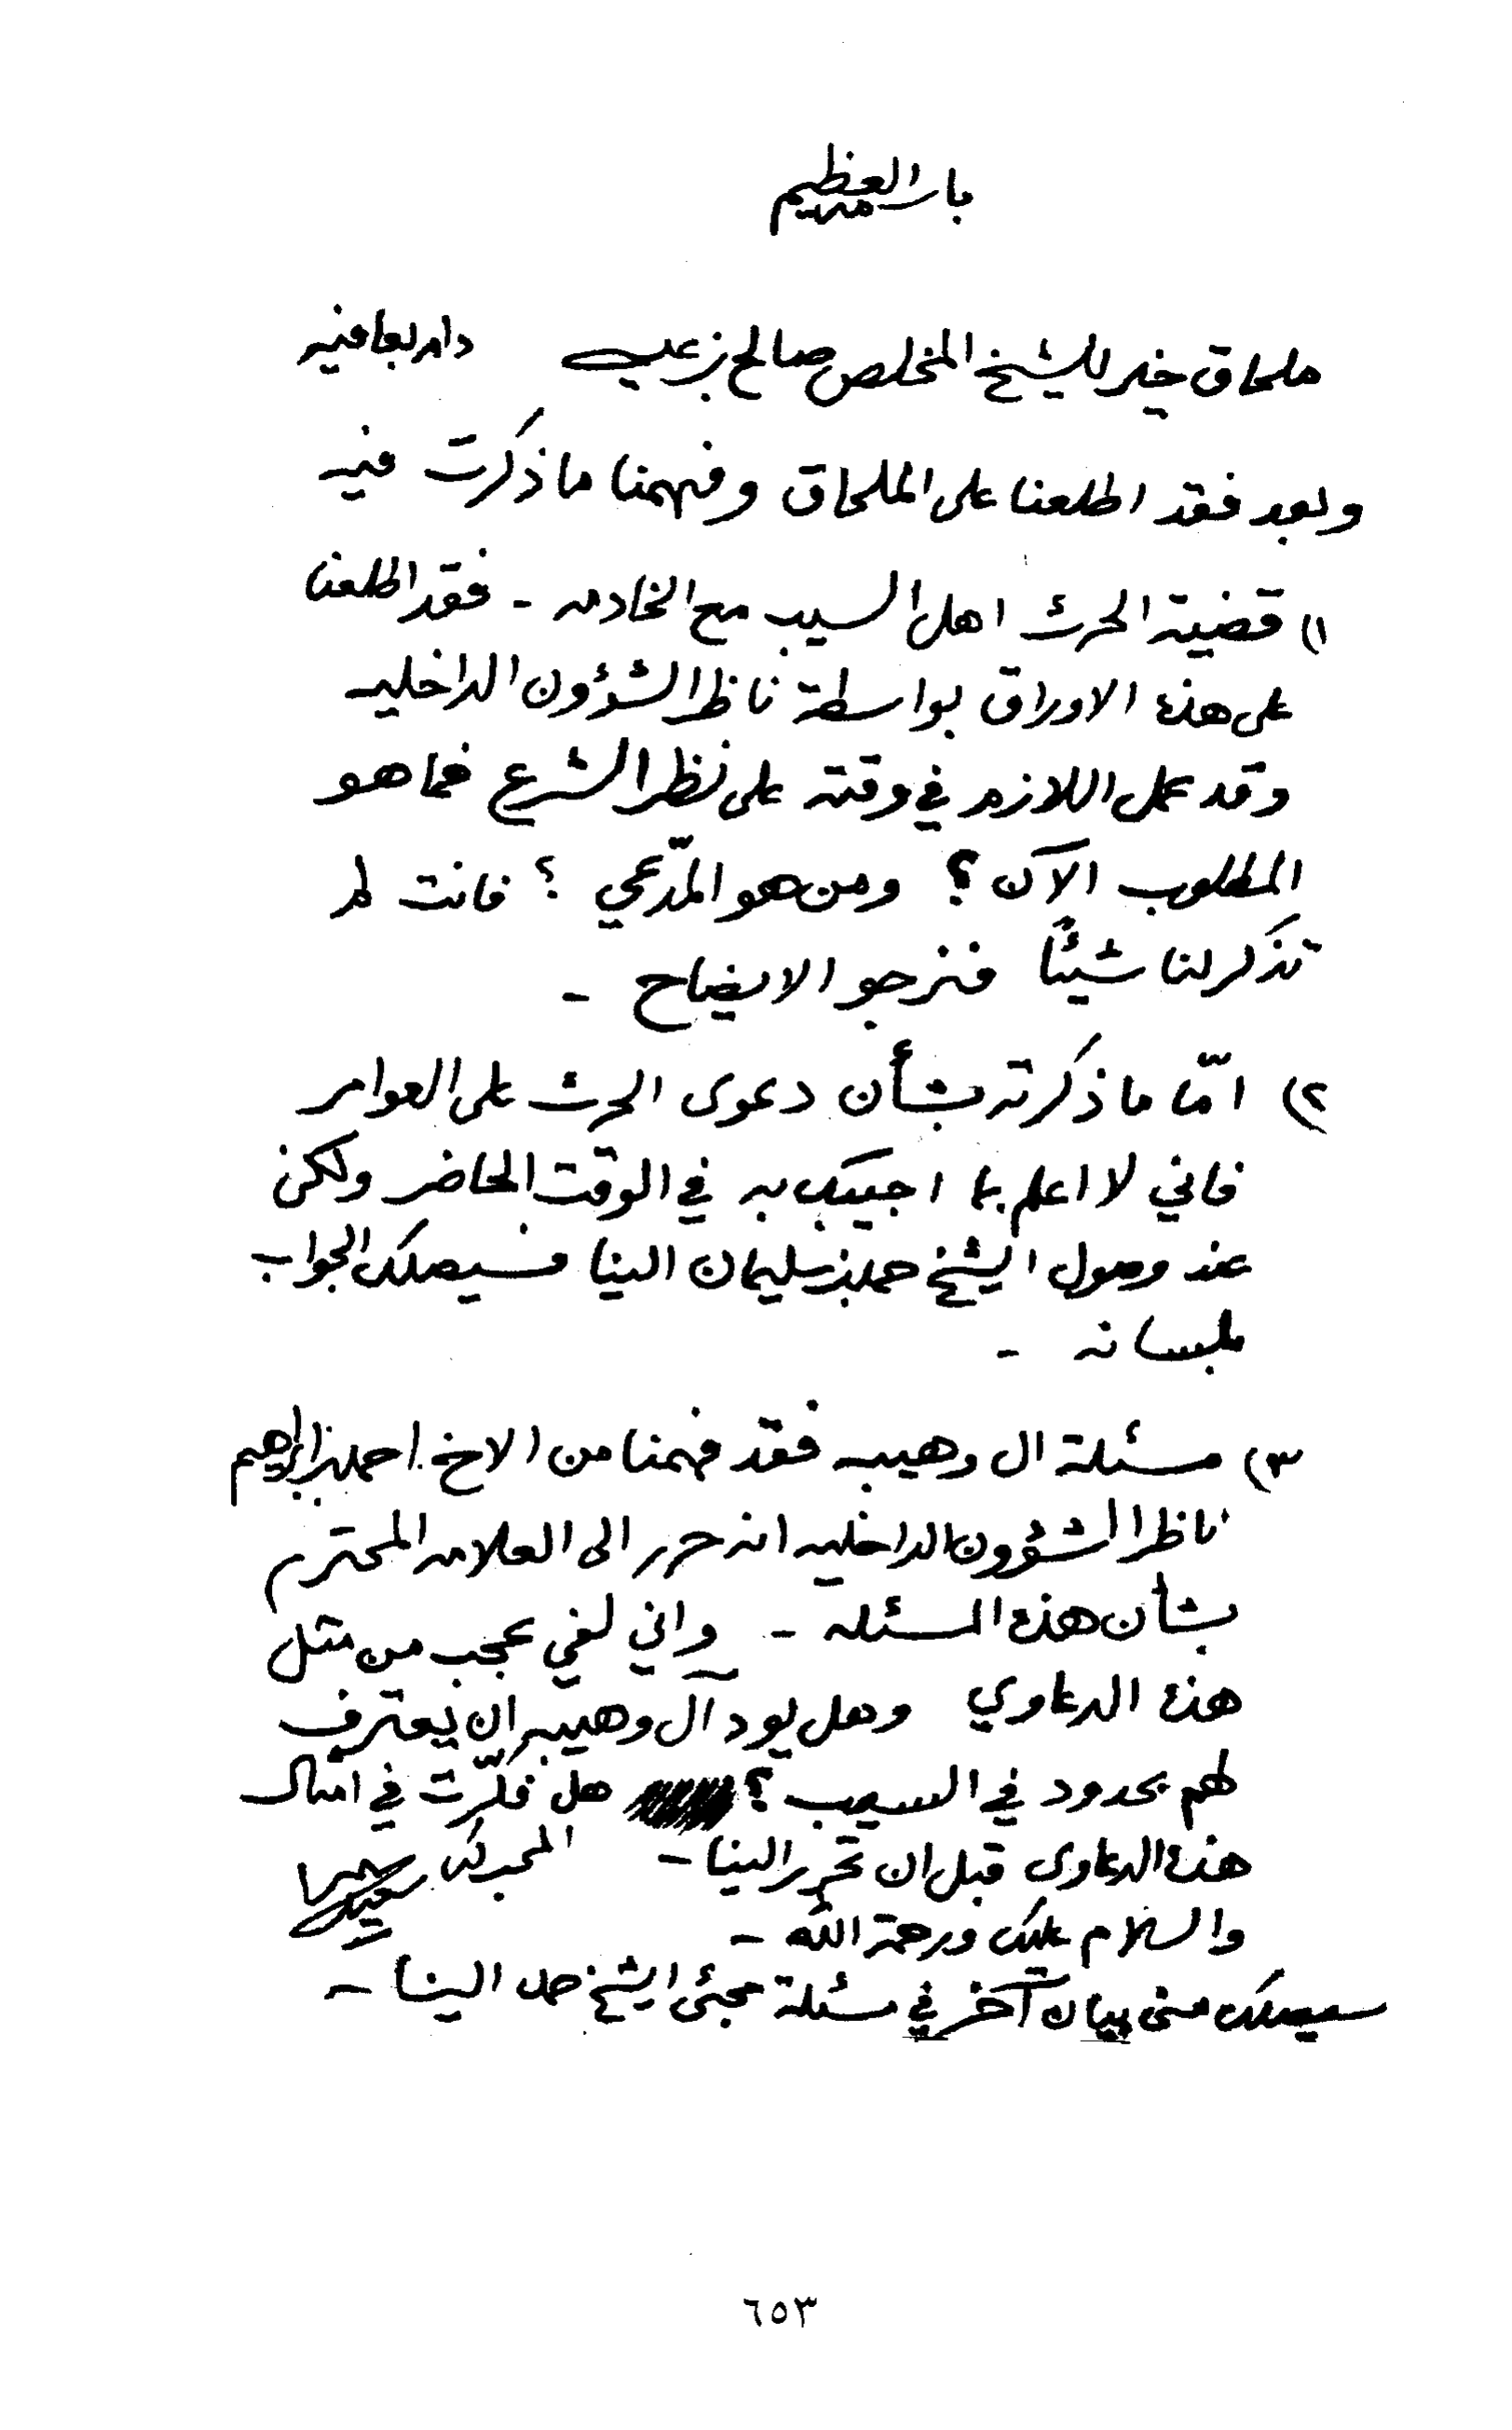 بالله العظيم
ملحاق خير للشيخ المخلص صالح بن عيسى دام بعافيه
وبعد فقد اطلعنا على الملحاق وفهمنا ما ذكرت فيه
١) قضية الحرث اهل السيب مع الخادم - فقد اطلعنا
على هذه الاوراق بواسطة ناظر الشؤون الداخليه
وقد عمل اللازم في وقته على نظر الشرع فما هو
المطلوب الآن؟ ومن هو المدّعي؟ فانت لم
تذكر لنا شيئًا فنرجو الايضاح -
٢) امّا ما ذكرته بشأن دعوى الحرث على العوامر
فاني لا اعلم بما اجيبك به في الوقت الحاضر ولكن
عند وصول الشيخ حمد بن سليمان الينا فسيصلك الجواب
بلسانه -
٣) مسئلة ال وهيبه فقد فهمنا من الاخ احمد بن ابراهيم
ناظر الشؤون الداخليه انه حرر الى العلامه المحترم
بشأن هذه المسئله - واني لفي عجب من مثل
هذه الدعاوي وهل يود آل وهيبه ان يعترف
لهم بحدود في السيب؟ هل فكّرت في امثال
هذه الدعاوى قبل ان تحرر الينا -
المحب لك سعيد
والسلام عليك ورحمة الله -
سيصلك مني بيان آخر في مسئلة مجئ الشيخ حمد الينا -
٦٥٣